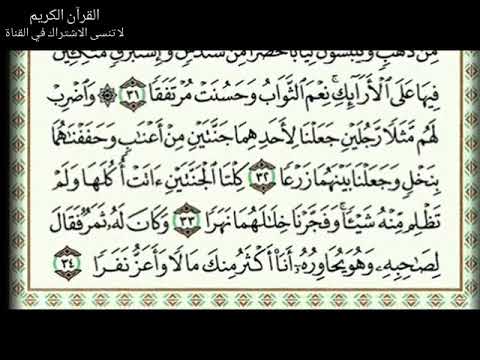 القرآن الكريم
لا تنسى الاشتراك في القناة
مِّن ذَهَبٍ وَيَلْبَسُونَ ثِيَابًا خُضْرًا مِّن سُندُسٍ وَإِسْتَبْرَقٍ مُّتَّكِـِٔينَ
فِيهَا عَلَى ٱلْأَرَآئِكِ ۚ نِعْمَ ٱلثَّوَابُ وَحَسُنَتْ مُرْتَفَقًا ٣١ ۞ وَٱضْرِبْ
لَهُم مَّثَلًا رَّجُلَيْنِ جَعَلْنَا لِأَحَدِهِمَا جَنَّتَيْنِ مِنْ أَعْنَٰبٍ وَحَفَفْنَٰهُمَا
بِنَخْلٍ وَجَعَلْنَا بَيْنَهُمَا زَرْعًا ٣٢ كِلْتَا ٱلْجَنَّتَيْنِ ءَاتَتْ أُكُلَهَا وَلَمْ
تَظْلِم مِّنْهُ شَيْـًٔا ۚ وَفَجَّرْنَا خِلَٰلَهُمَا نَهَرًا ٣٣ وَكَانَ لَهُۥ ثَمَرٌ فَقَالَ
لِصَٰحِبِهِۦ وَهُوَ يُحَاوِرُهُۥٓ أَنَا۠ أَكْثَرُ مِنكَ مَالًا وَأَعَزُّ نَفَرًا ٣٤